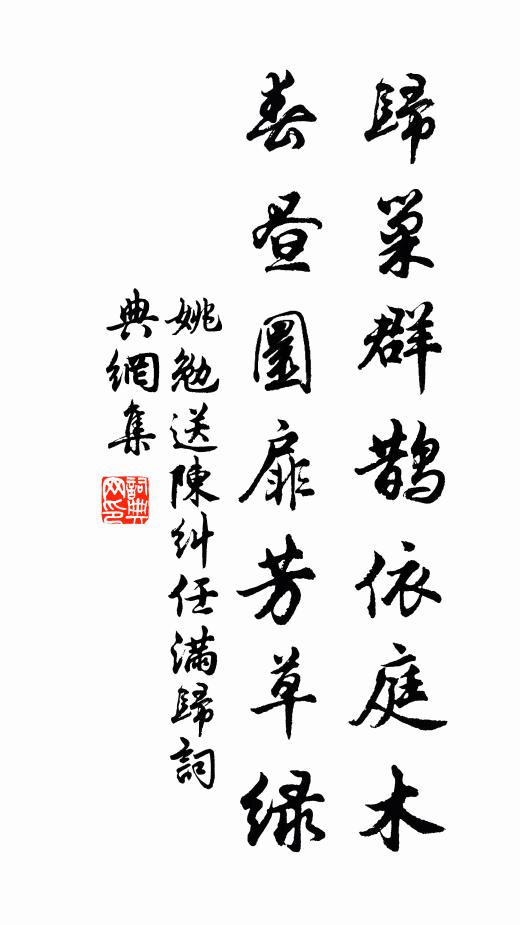 歸巢群鵲依庭木
春昼圜扉芳草緑
姚勉送陳糾任滿歸詞
典網集
詞典網印